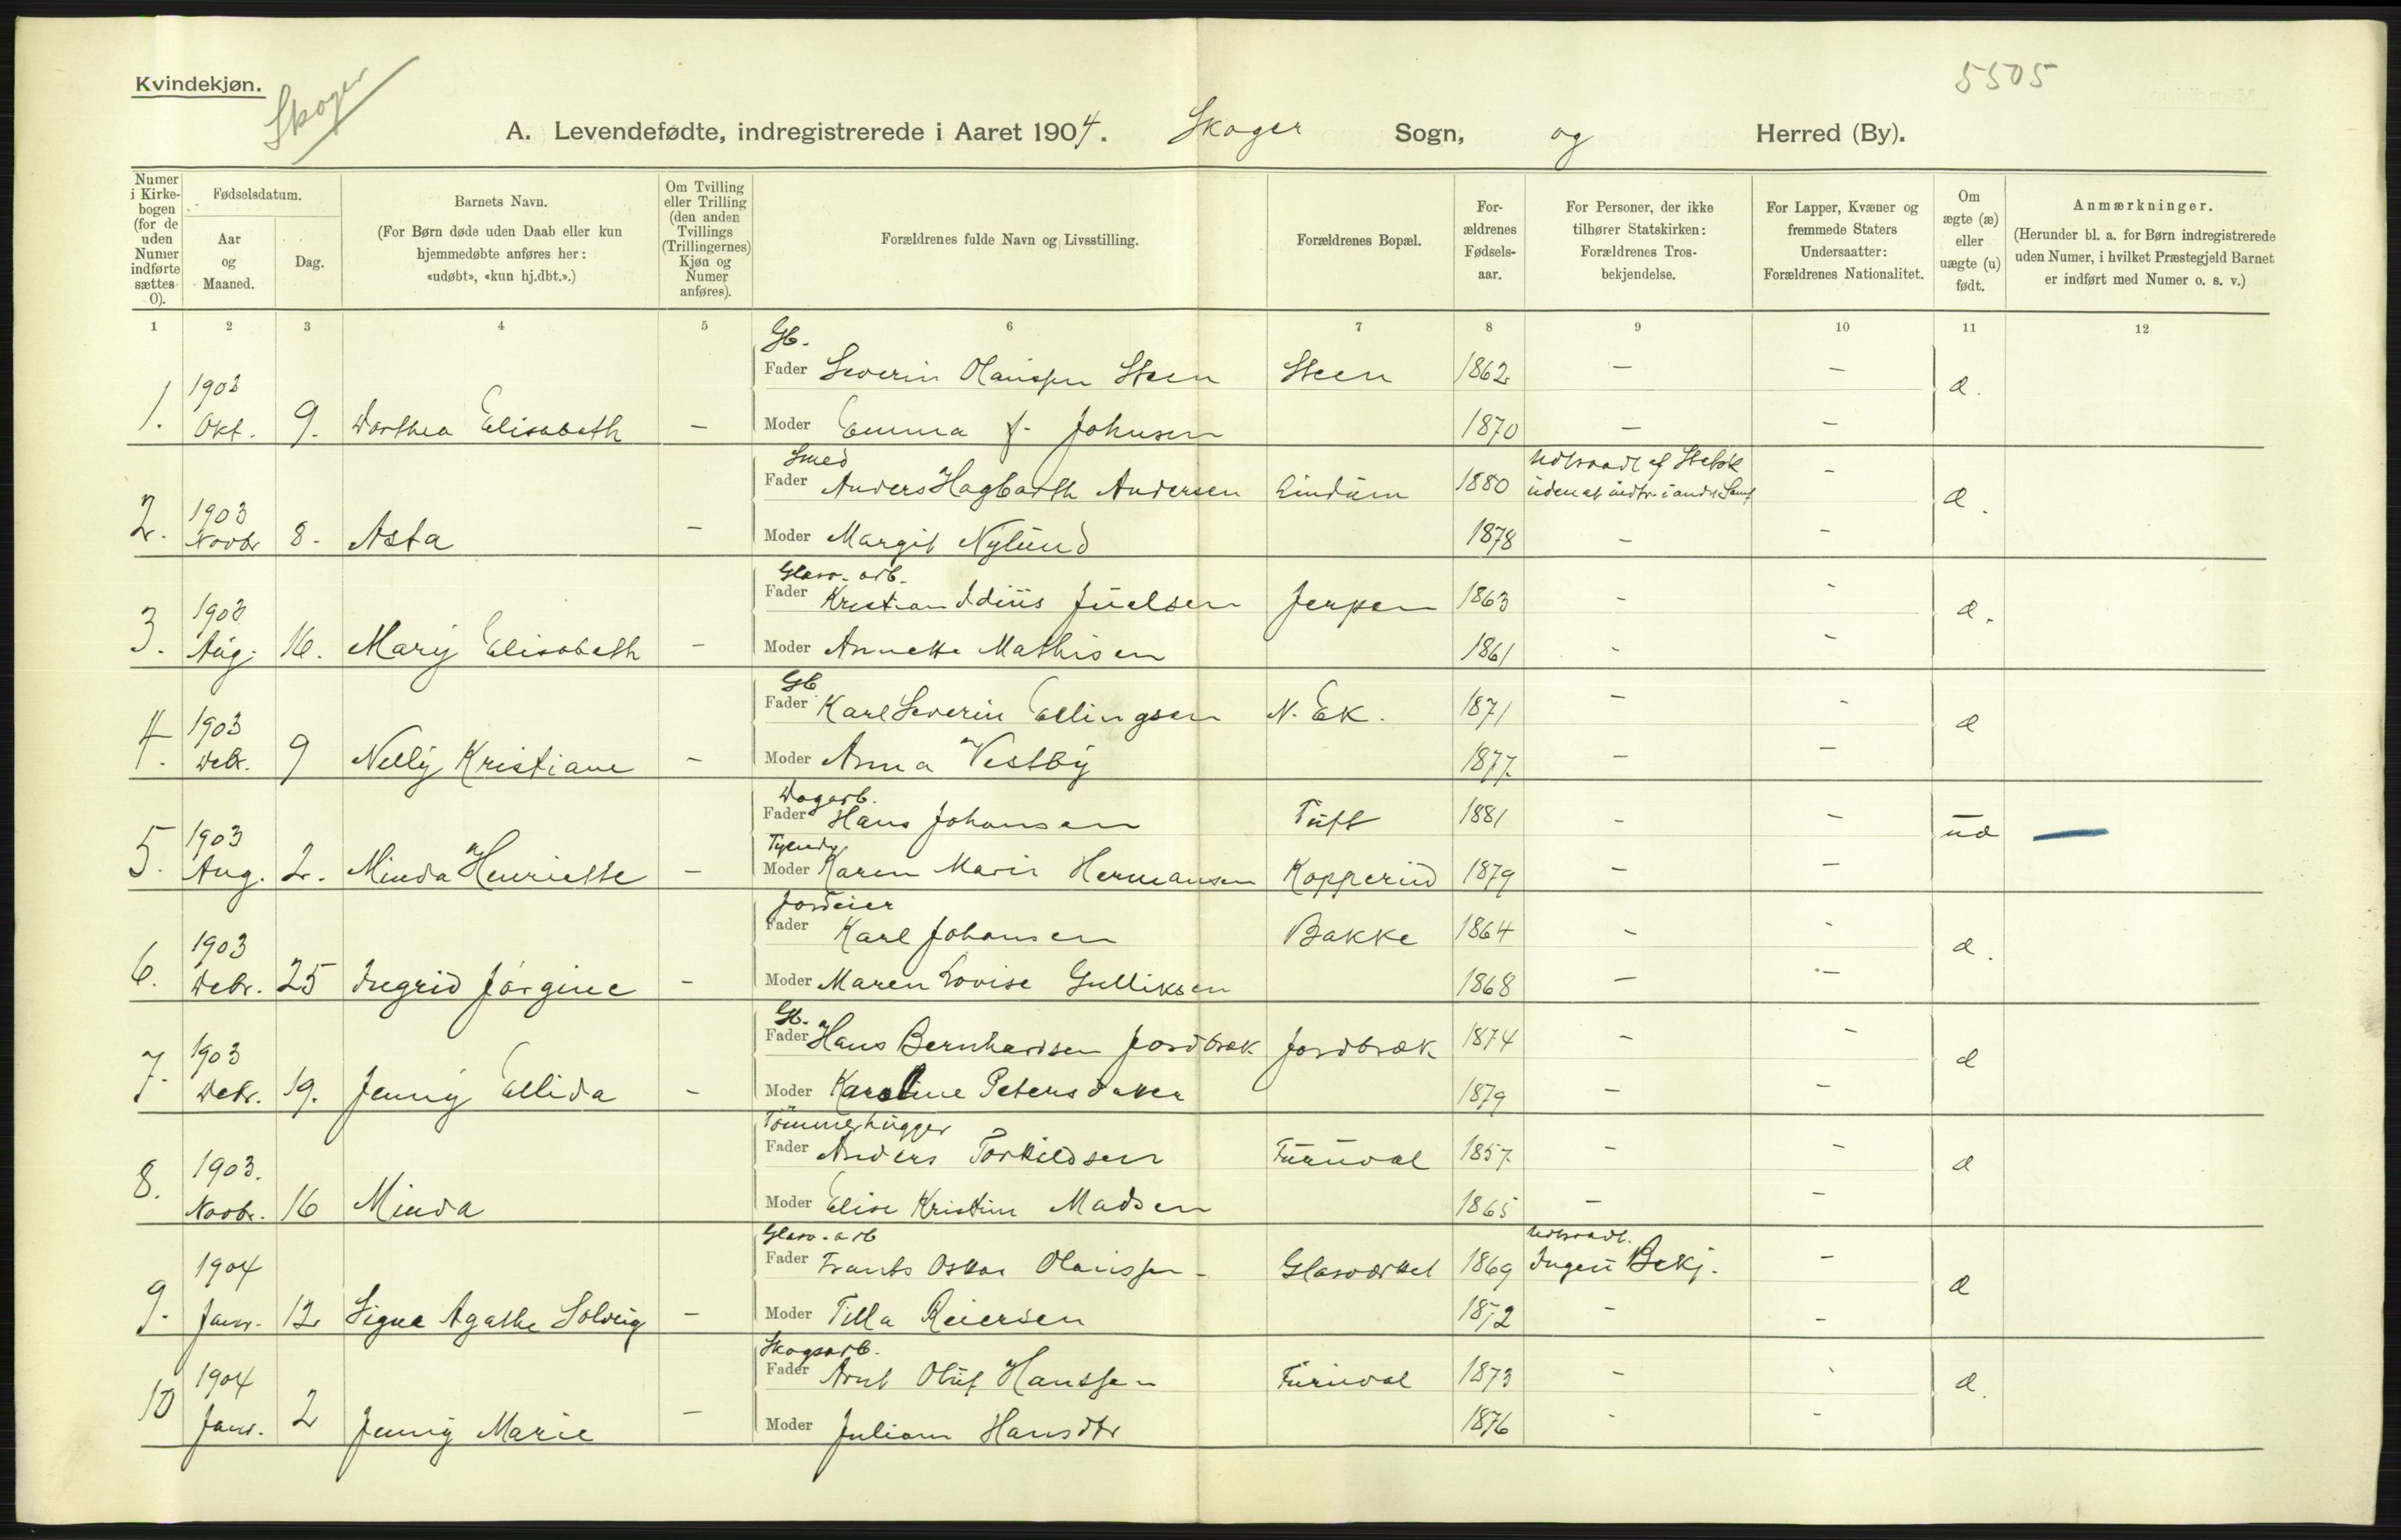 Kvindekjøn.
Skoger
5505
A. Levendefødte, indregistrerede i Aaret 1904. Skoger Sogn, og Herred (By).
Numer i Kirkebogen (for de uden Numer indførte sættes 0).
Fødselsdatum.
Aar og Maaned.
Dag.
Barnets Navn.
(For Børn døde uden Daab eller kun hjemmedøbte anføres her: «udøbt», «kun hj.dbt.».)
Om Tvilling eller Trilling (den anden Tvillings (Trillingernes) Kjøn og Numer anføres).
Forældrenes fulde Navn og Livsstilling.
Forældrenes Bopæl.
Forældrenes Fødselsaar.
For Personer, der ikke tilhører Statskirken: Forældrenes Trosbekjendelse.
For Lapper, Kvæner og fremmede Staters Undersaatter: Forældrenes Nationalitet.
Om ægte (æ) eller uægte (u) født.
Anmærkninger.
(Herunder bl. a. for Børn indregistrerede uden Numer, i hvilket Præstegjeld Barnet er indført med Numer o. s. v.)
1 2 3 4 5 6 7 8 9 10 11 12
Gb.
1903 Fader Severin Olaussen Steen Steen 1862 — — æ.
1. Okt. 9. Dorthea Elisabeth — Moder Emma f. Johnsen 1870 — —
Smed
1903 Fader Anders Hagbarth Andersen Lindum 1880 Udtraadt af Statsk. uden at indtr. i andre Samf — æ.
2. Novbr 8. Asta — Moder Margit Nylund 1878 — —
Glasv. arb.
1903 Fader Kristian Idius Juelsen Jerpen 1863 - - æ.
3. Aug. 16. Mary Elisabeth — Moder Annette Mathisen 1861 - -
Gb
1903 Fader Karl Severin Ellingsen N. Ek. 1871 — - æ
4. Debr. 9 Nelly Kristiane — Moder Anna Vestby 1877. — —
Dagarb.
1903 Fader Hans Johansen Tuft 1881 - — uæ —
Tyende
5. Aug. 2. Minda Henriette — Moder Karen Marie Hermansen Kopperud 1879 — —
Jordeier
1903 Fader Karl Johansen Bakke 1864 - - æ.
6. Debr. 25 Ingrid Jørgine — Moder Maren Lovise Gulliksen 1868 — —
Gb.
1903 Fader Hans Bernhardsen Jordbræk Jordbræk 1874 — — æ
7. Debr. 19. Jenny Ellida — Moder Karoline Petersdatter 1879 — —
Tømmerhugger
1903. Fader Anders Torkildsen Furuval 1857. — — æ
8. Novbr. 16 Minda Moder Elise Kristine Madsen 1865 — —
Glasv. arb
1904 Fader Frants Oskar Olaussen - Glasværket 1869 Udtraadt. Ingen Bekj. — æ
9. Janr. 12 Signe Agathe Solveig — Moder Tilla Reiersen 1872 - -
Skogsarb.
1904 Fader Arnt Oluf Hanssen Furuval 1873 - - æ.
10 Janr. 2 Jenny Marie — Moder Juliane Hansdtr 1876 - -